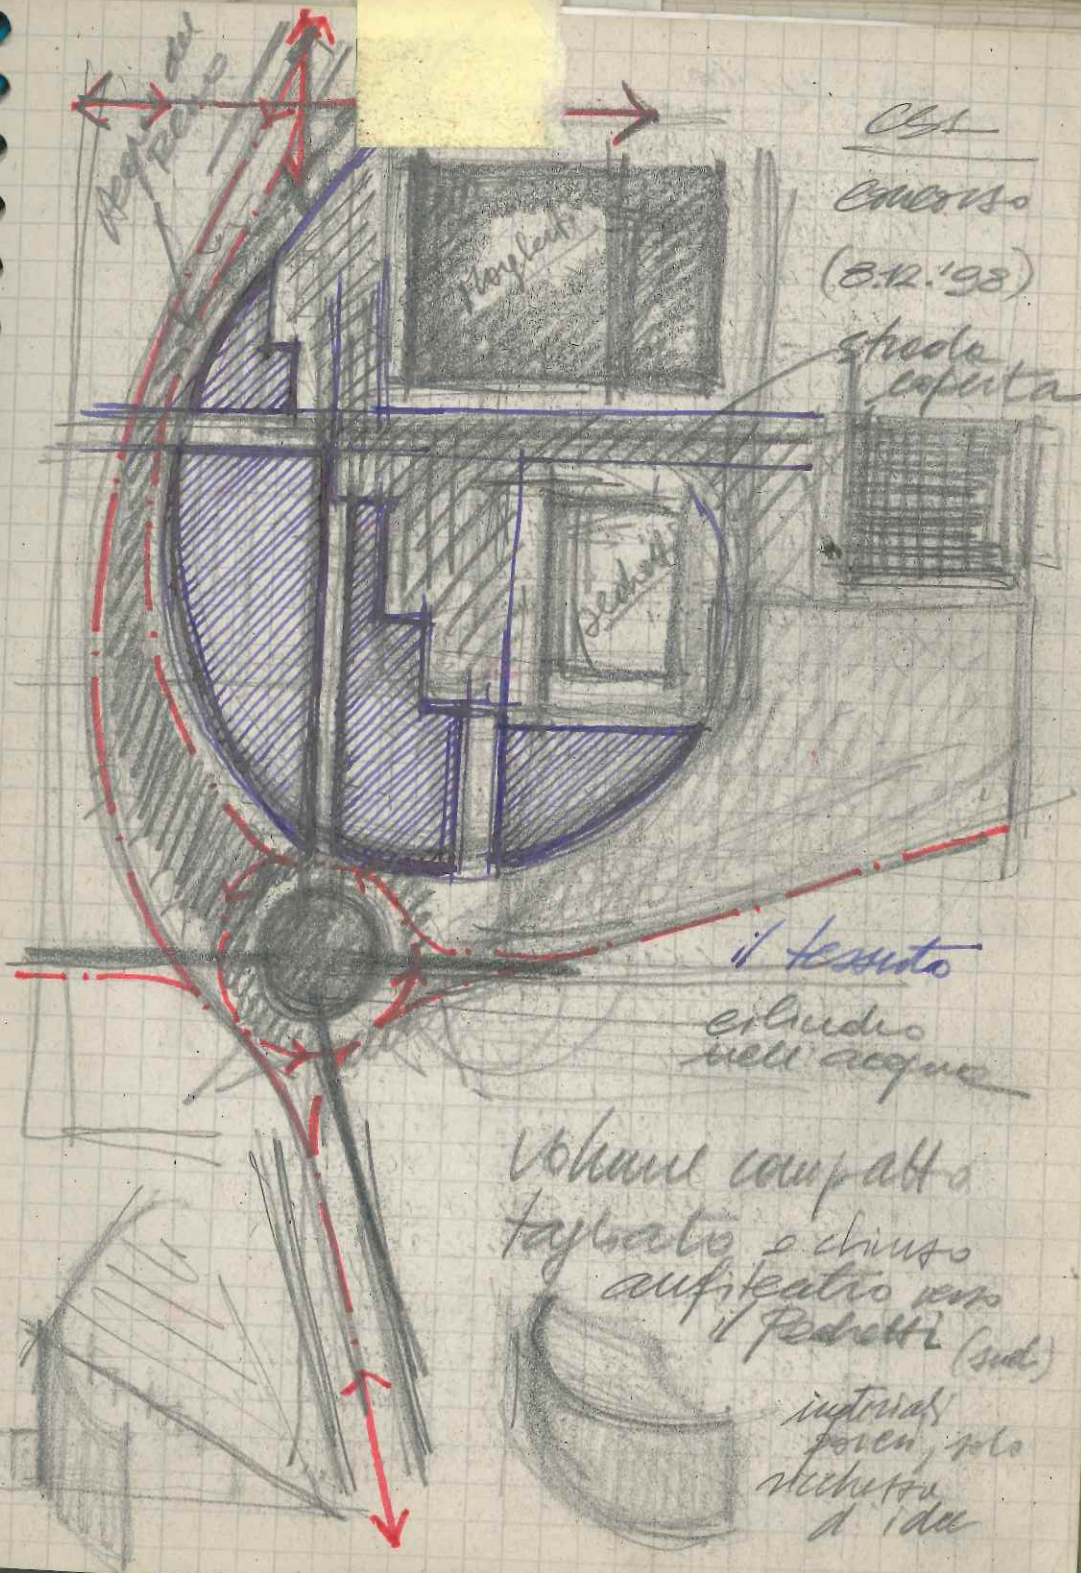 CBL
concorso
(8.12.'98)
strada
coperta
Pedretti
il tessuto
cilindro
nell'acqua
Volume compatto
tagliato e chiuso
anfiteatro verso
il Pedretti (sud)
materiali
poveri, solo
ricchezza
d'idee